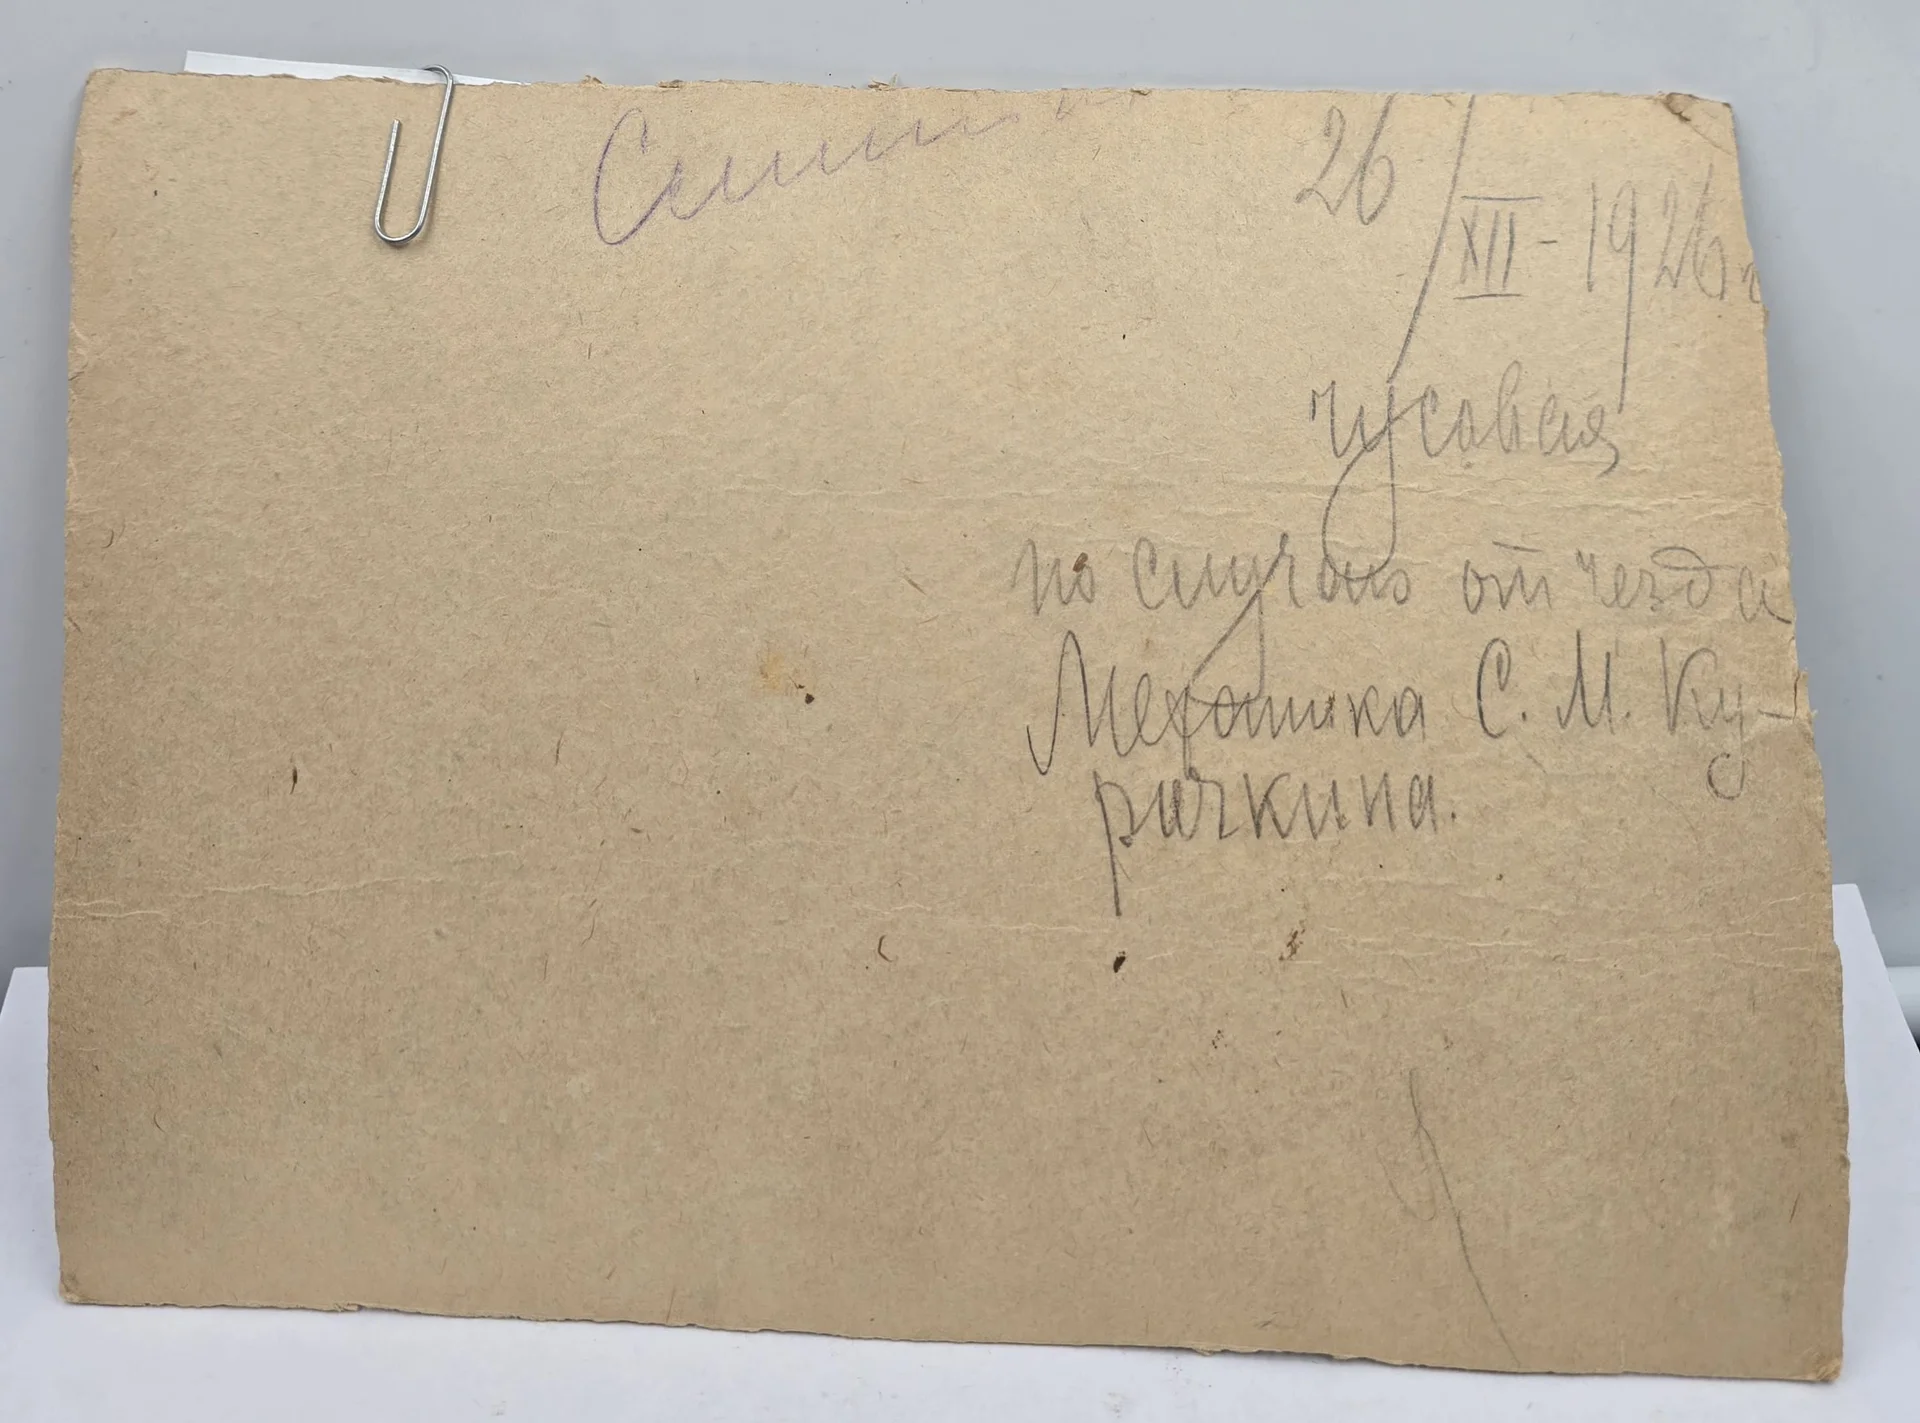 26/XII-1926 г
Чусовая
по случаю отъезда
Механика С. М. Ку-
рачкина.